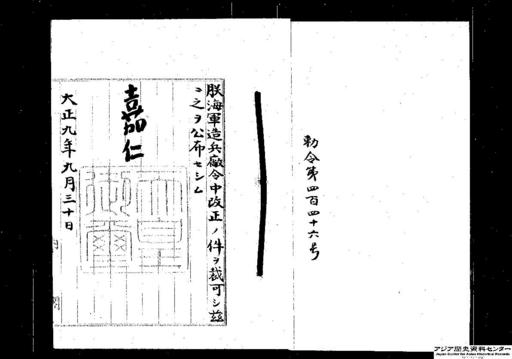 勅令第四百四十六号
朕海軍造兵廠令中改正ノ件ヲ裁可シ玆
ニ之ヲ公布セシム
嘉仁
天皇御璽
大正九年九月三十日
アジア歴史資料センター
Japan Center for Asian Historical Records